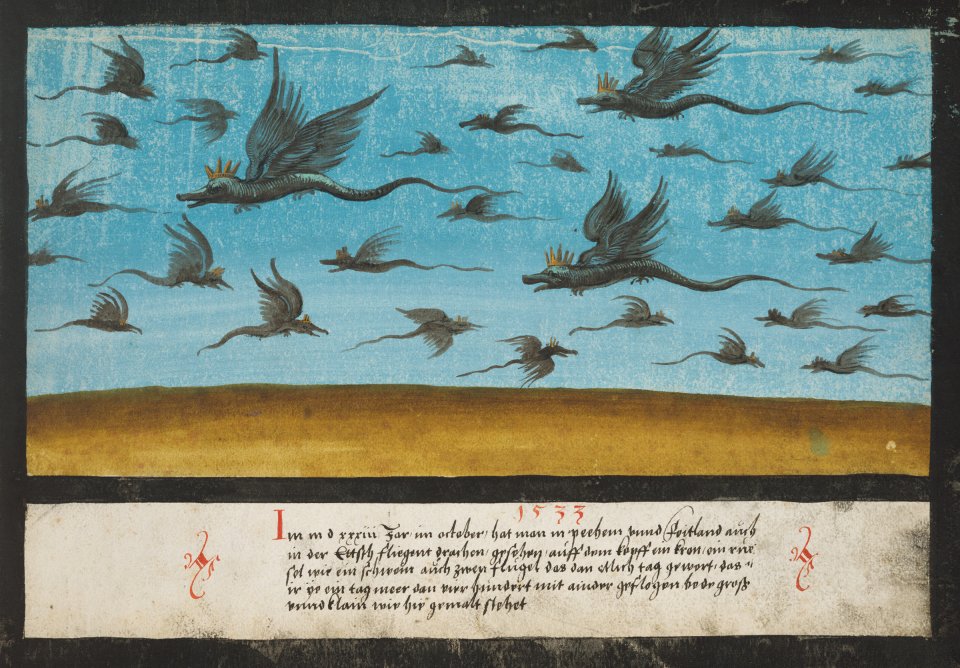 1533
Im m d xxxiii Jor im october, hat man in peehem vnnd Foitland auch
in der Etisch fliegent drachen gesehen auff dem kopff ein kron, ein rue
sel wie ein schwein auch zwen flugel das dan etlich tag gewert, das
ir ye ein tag meer dan vier hundert mit ainder geflogen bede groß
vnnd klain wie hie gemalt stehet